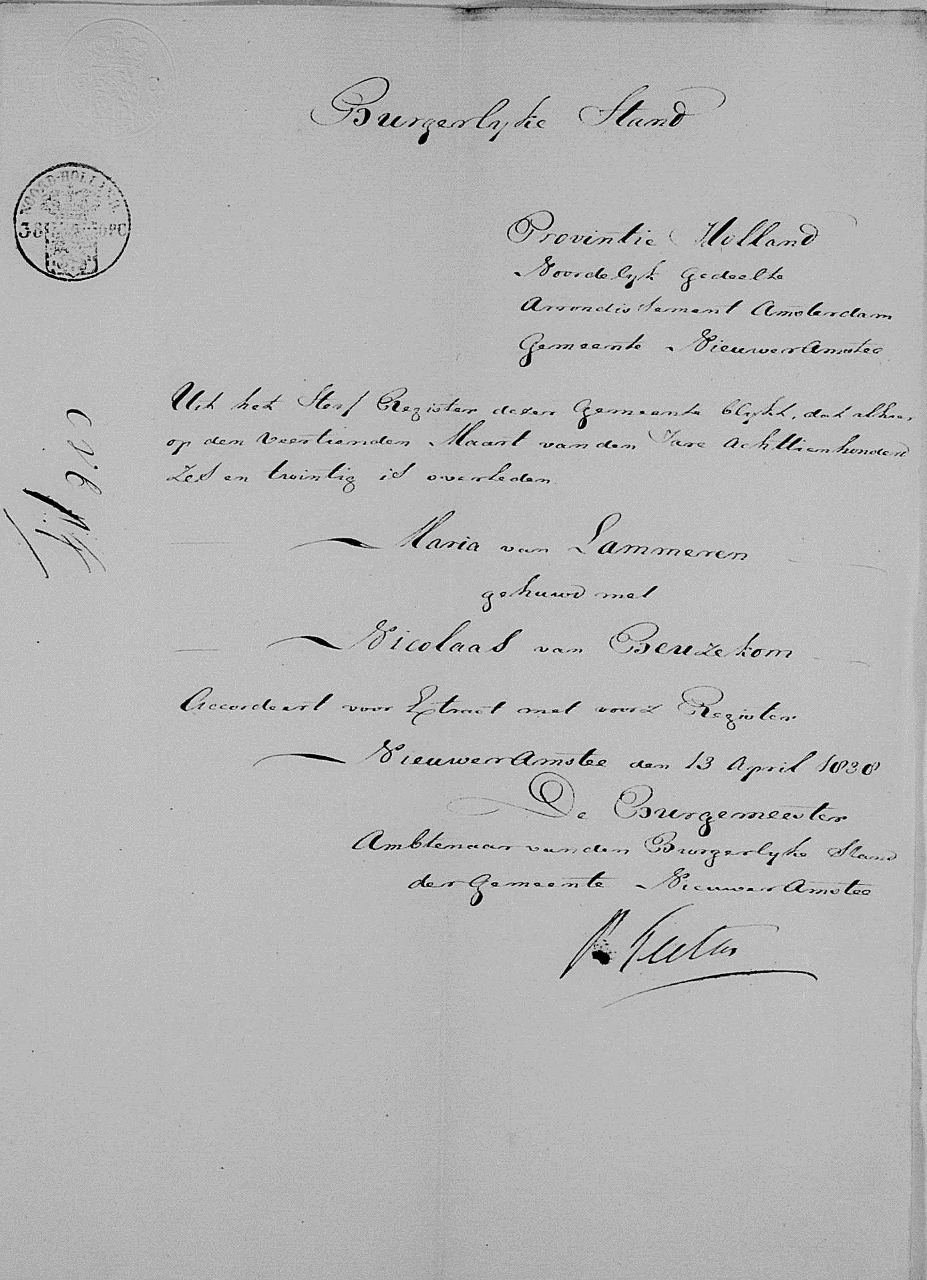 Burgerlyke Stand
NOORD-HOLLAND
Provintie Holland
Noordelyk Gedeelte
Arrondissement Amsterdam
Gemeente NieuwerAmstel
Uit het Sterf Register dezer Gemeente blykt, dat alhier,
op den Veertienden Maart van den Jare Achttienhonderd
Zes en twintig is overleden
Maria van Lammeren
gehuwd met
Nicolaas van Beuzekom
Accordeert voor Extract met voorz Register
NieuwerAmstel den 13 April 1838
De Burgemeester
Ambtenaar van den Burgerlyke Stand
der Gemeente NieuwerAmstel